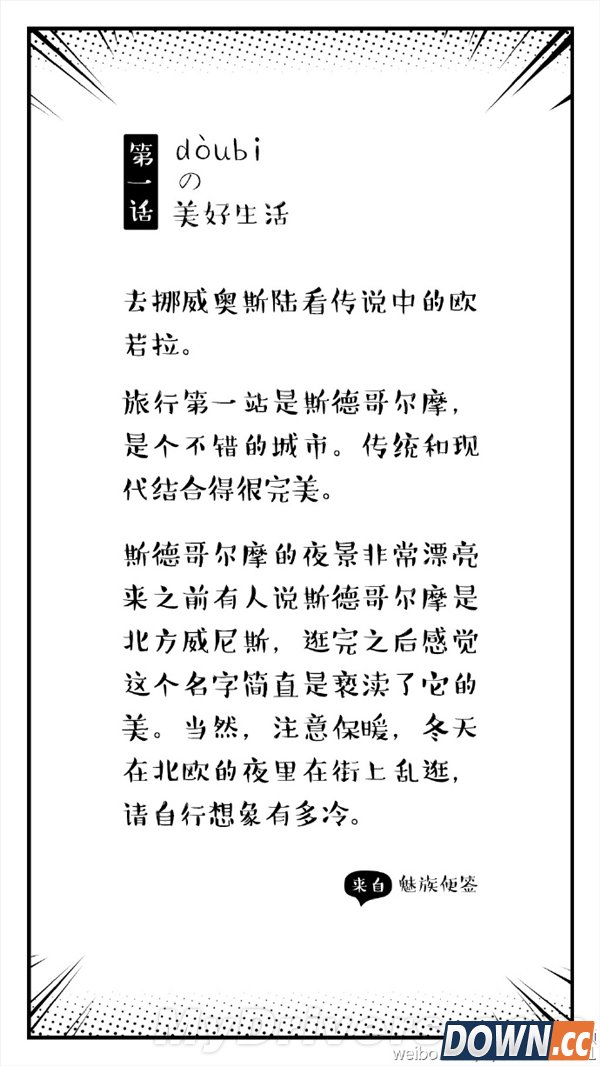 第一话
dòubi
の
美好生活
去挪威奥斯陆看传说中的欧
若拉。
旅行第一站是斯德哥尔摩，
是个不错的城市。传统和现
代结合得很完美。
斯德哥尔摩的夜景非常漂亮
来之前有人说斯德哥尔摩是
北方威尼斯，逛完之后感觉
这个名字简直是亵渎了它的
美。当然，注意保暖，冬天
在北欧的夜里在街上乱逛，
请自行想象有多冷。
来自 魅族便签
MyDrivers
weibo
DOWN.cc